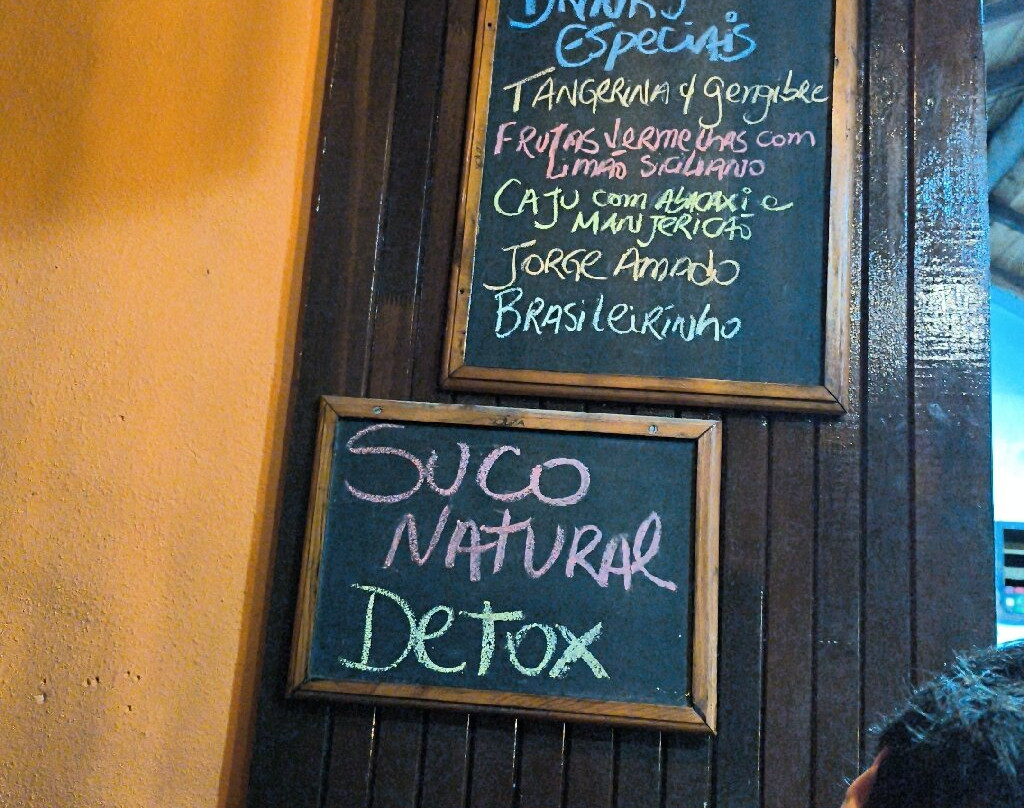 Drinks
Especiais
Tangerina y gengibre
Frutas vermelhas com
Limão Siciliano
Caju com Abacaxi e
Manjericão
Jorge Amado
Brasileirinho
Suco
Natural
Detox